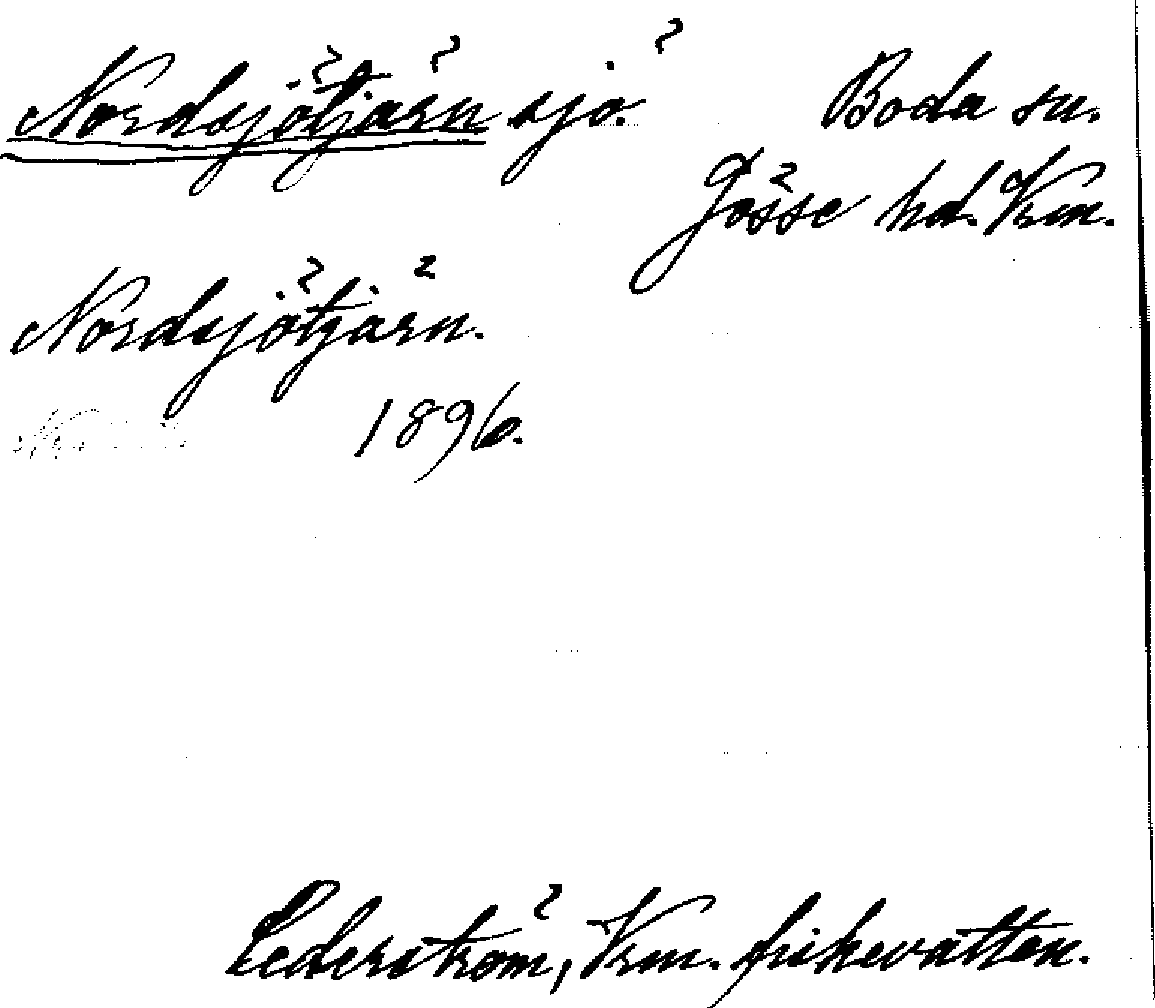 Nordsjötjärn sjö. Boda sn.
Jösse hd. Vrm.
Nordsjötjärn.
1896.
Cederström, Vrm. fiskevatten.